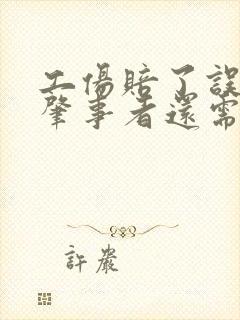 工傷賠了誤
肇事者還需
許嚴